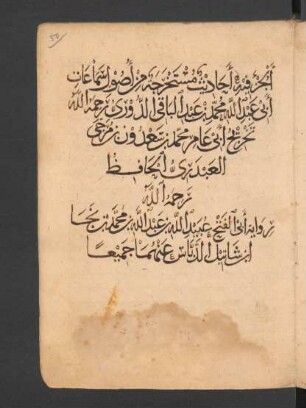 50
الجزء فيه أحاديث مستخرجة من أصول سماعات
أبي عبد الله محمد بن عبد الباقي الدوري رحمه الله
تخريج أبي عامر محمد بن سعدون بن مرجى
العبدري الحافظ
رحمه الله
رواية أبي الفتح عبيد الله بن عبد الله بن محمد بن نجا
ابن شاتيل الدباس عنهما جميعا